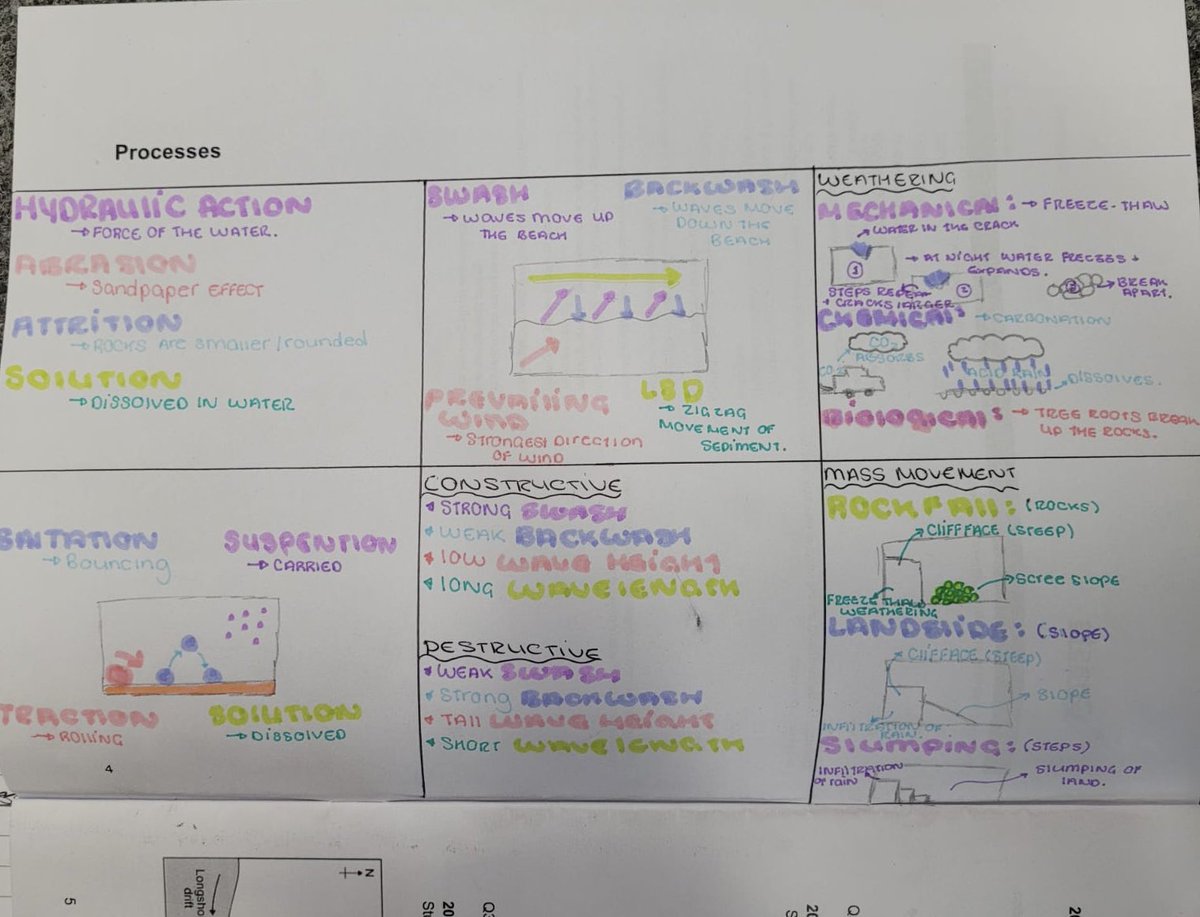 Processes
HYDRAULIC ACTION
→ FORCE OF THE WATER.
ABRASION
→ Sandpaper EFFECT
ATTRITION
→ ROCKS ARE smaller/rounded
SOLUTION
→ DISSOLVED IN WATER
SWASH
→ WAVES MOVE UP
THE BEACH
BACKWASH
→ WAVES MOVE
DOWN THE
BEACH
PREVAILING
WIND
→ STRONGEST DIRECTION
OF WIND
LSD
→ ZIGZAG
MOVEMENT OF
SEDIMENT.
WEATHERING
MECHANICAL: → FREEZE-THAW
WATER IN THE CRACK
1
→ AT NIGHT WATER FREEZES +
EXPANDS.
2
3
BREAK
APART.
STEPS REPEAT
+ CRACKS LARGER
CHEMICAL: → CARBONATION
CO2
ABSORBS
CO2
ACID RAIN
DISSOLVES.
BIOLOGICAL: → TREE ROOTS BREAK
UP THE ROCKS.
SALTATION
→ Bouncing
SUSPENTION
→ CARRIED
TRACTION
→ ROLLING
SOLUTION
→ DISSOLVED
4
CONSTRUCTIVE
STRONG SWASH
WEAK BACKWASH
LOW WAVE HEIGHT
LONG WAVELENGTH
DESTRUCTIVE
WEAK SWASH
Strong BACKWASH
TALL WAVE HEIGHT
SHORT WAVELENGTH
MASS MOVEMENT
ROCKFALL: (ROCKS)
CLIFF FACE (STEEP)
SCREE SLOPE
FREEZE THAW
WEATHERING
LANDSLIDE: (SLOPE)
CLIFFFACE (STEEP)
SLOPE
INFILTRATION OF
RAIN.
SLUMPING: (STEPS)
INFILTRATION
OF rain
SLUMPING OF
LAND.
5
Longsho
drift
N
20
St
Q